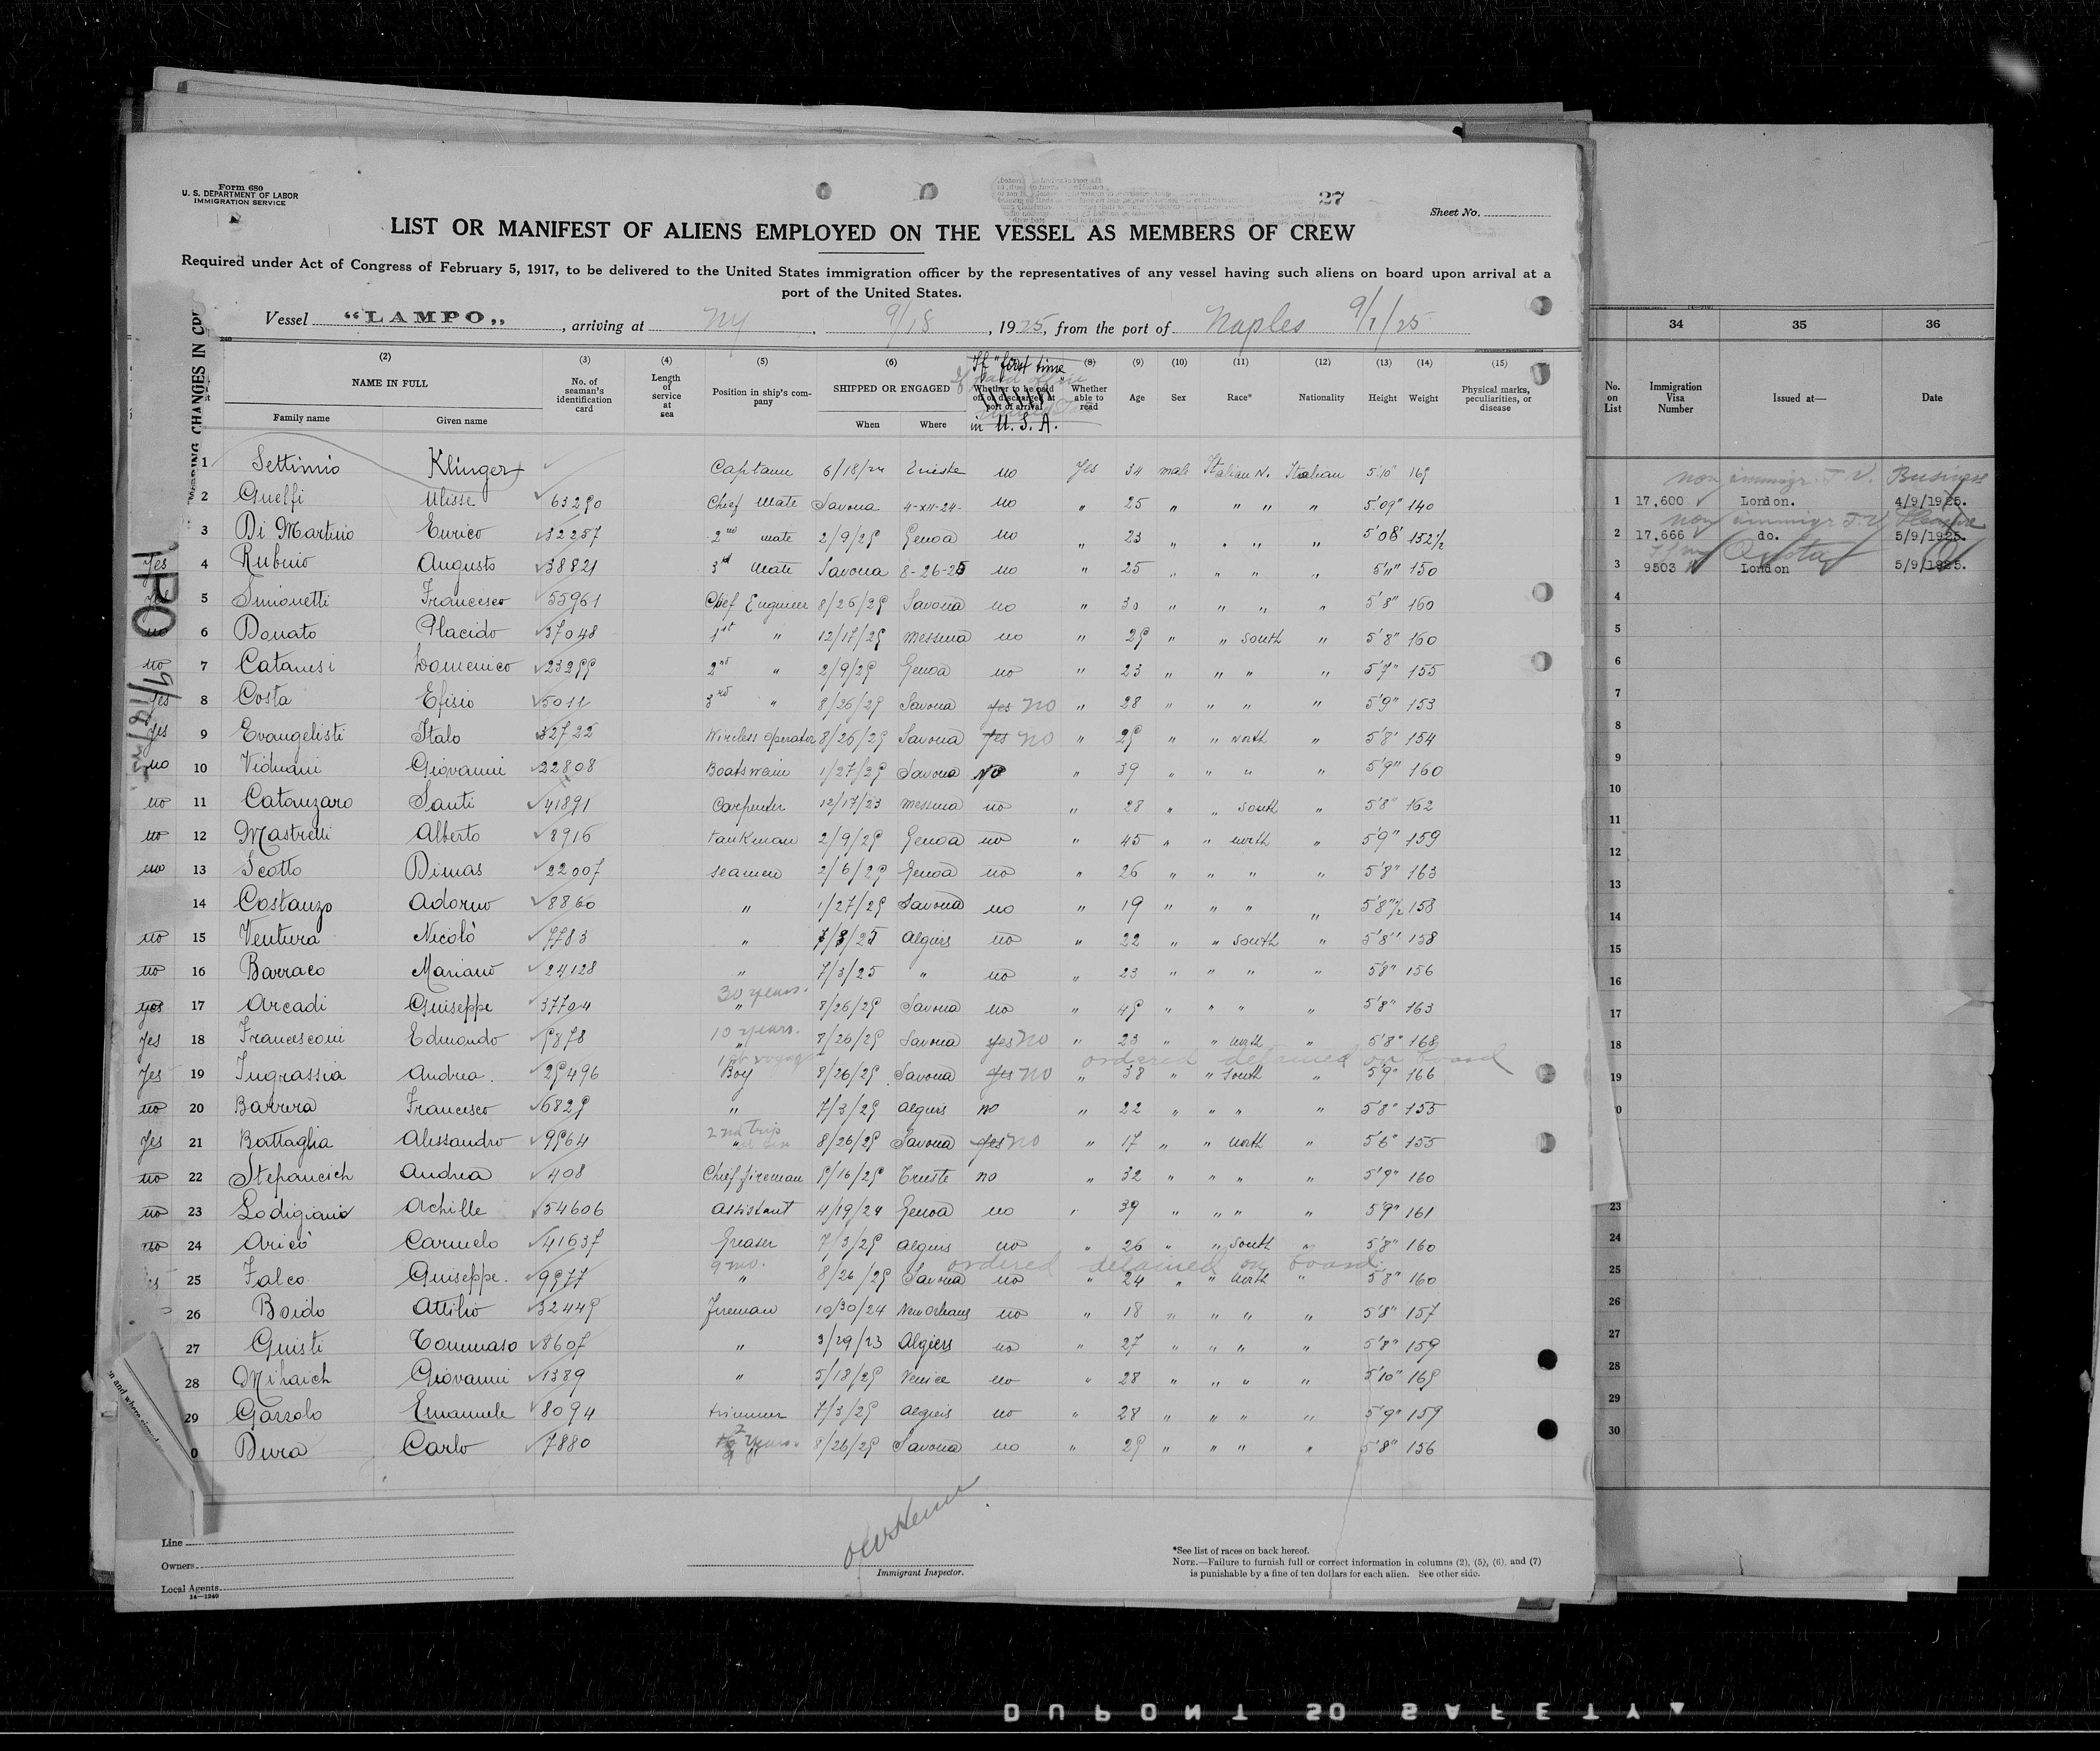 Form 680
U. S. DEPARTMENT OF LABOR
IMMIGRATION SERVICE
27
Sheet No.
LIST OR MANIFEST OF ALIENS EMPLOYED ON THE VESSEL AS MEMBERS OF CREW
Required under Act of Congress of February 5, 1917, to be delivered to the United States immigration officer by the representatives of any vessel having such aliens on board upon arrival at a
port of the United States.
Vessel "LAMPO„ , arriving at NY , 9/18 , 1925, from the port of Naples 9/1/25
(2) (3) (4) (5) (6) (8) (9) (10) (11) (12) (13) (14) (15)
NAME IN FULL
Family name Given name
No. of seaman's identification card
Length of service at sea
Position in ship's company
SHIPPED OR ENGAGED
When Where
If "first time
Whether to be paid off or discharged at port of arrival
in U. S. A.
Whether able to read
Age Sex Race* Nationality Height Weight
Physical marks, peculiarities, or disease
1 Settimio Klinger Captain 6/18/24 Trieste no Yes 34 male Italian N. Italian 5'10"
2 Guelfi Ulisse 63290 Chief Mate Savona 4-XII-24- no " 25 " " " " 5'09" 140
3 Di Martino Enrico 32257 2nd mate 2/9/25 Genoa no " 23 " " " " 5'08' 152½
Yes 4 Rubino Augusto 38821 3rd Mate Savona 8-26-25 no " 25 " " " " 5'11" 150
5 Simonetti Francesco 55961 Chief Engineer 8/26/25 Savona no " 30 " " " " 5'8" 160
no 6 Donato Placido 37048 1st " 12/17/25 Messina no " 25 " " South " 5'8" 160
no 7 Catanesi Domenico 23255 2nd " 2/9/25 Genoa no " 23 " " " " 5'7" 155
Yes 8 Costa Efisio 5011 3rd " 8/26/25 Savona yes no " 28 " " " " 5'9" 153
Yes 9 Evangelisti Italo 32722 Wireless operator 8/26/25 Savona yes no " 25 " " North " 5'8' 154
no 10 Viduani Giovanni 22808 Boatswain 1/27/25 Savona NO " 39 " " " " 5'9" 160
no 11 Catanzaro Santi 41891 Carpenter 12/17/23 Messina no " 28 " " South " 5'8" 162
no 12 Mastrelli Alberto 8916 tankman 2/9/25 Genoa no " 45 " " north " 5'9" 159
no 13 Scotto Dimas 22007 seamen 2/6/25 Genoa no " 26 " " " " 5'8" 163
14 Costanzo Adorno 8860 " 1/27/25 Savona no " 19 " " " " 5'8"½ 158
no 15 Ventura Nicolò 7783 " 7/3/25 Algiers no " 22 " " South " 5'8" 158
no 16 Barraco Mariano 24128 " 7/3/25 " no " 23 " " " " 5'8" 156
30 years.
yes 17 Arcadi Guiseppe 37704 " 8/26/25 Savona no " 45 " " " " 5'8" 163
10 years.
Yes 18 Francesconi Edmondo 5878 " 8/26/25 Savona yes no " 23 " " North " 5'8" 168
1st voyage ordered detained on board
Yes 19 Ingrassia Andrea. 25496 Boy 8/26/25 Savona yes no " 38 " " South " 5'9" 166
no 20 Barrera Francesco 6825 " 7/3/25 Algiers no " 22 " " " " 5'8" 155
2nd trip
Yes 21 Battaglia Alessandro 9564 " 8/26/25 Savona yes no " 17 " " North " 5'6" 155
no 22 Stepancich Andrea 408 Chief fireman 5/16/25 Trieste no " 32 " " " " 5'9" 160
no 23 Lodigiani Achille 54606 Assistant 4/19/24 Genoa no " 39 " " " " 5'9" 161
no 24 Aricò Carmelo 41637 Greaser 7/3/25 Algiers no " 26 " " South " 5'8" 160
9 mo. ordered detained on board
25 Falco Guiseppe. 9577 " 8/26/25 Savona no " 24 " " North " 5'8" 160
26 Boido Attilio 32445 Fireman 10/30/24 New Orleans no " 18 " " " " 5'8" 157
27 Guisti Tommaso 8607 " 3/29/23 Algiers no " 27 " " " " 5'8" 159
28 Mihaich Giovanni 1389 " 5/18/25 Venice no " 28 " " " " 5'10" 165
29 Gazzolo Emanuele 8094 trimmer 7/3/25 Algiers no " 28 " " " " 5'9" 159
0 Dura Carlo 7880 2 years. " 8/26/25 Savona no " 25 " " " " 5'8" 156
Line
Owners
Local Agents
14—1240
Immigrant Inspector.
*See list of races on back hereof.
NOTE.—Failure to furnish full or correct information in columns (2), (5), (6), and (7)
is punishable by a fine of ten dollars for each alien. See other side.
34 35 36
No. on List
Immigration Visa Number
Issued at—
Date
non immigr. T. V. Business
1 17,600 London. 4/9/1925.
non immigr T.V. Pleasure
2 17,666 do. 5/9/1925.
Quota
3 9503 London 5/9/1925.
4
5
6
7
8
9
10
11
12
13
14
15
16
17
18
19
0
23
24
25
26
27
28
29
30
DUPONT SO SAFETY